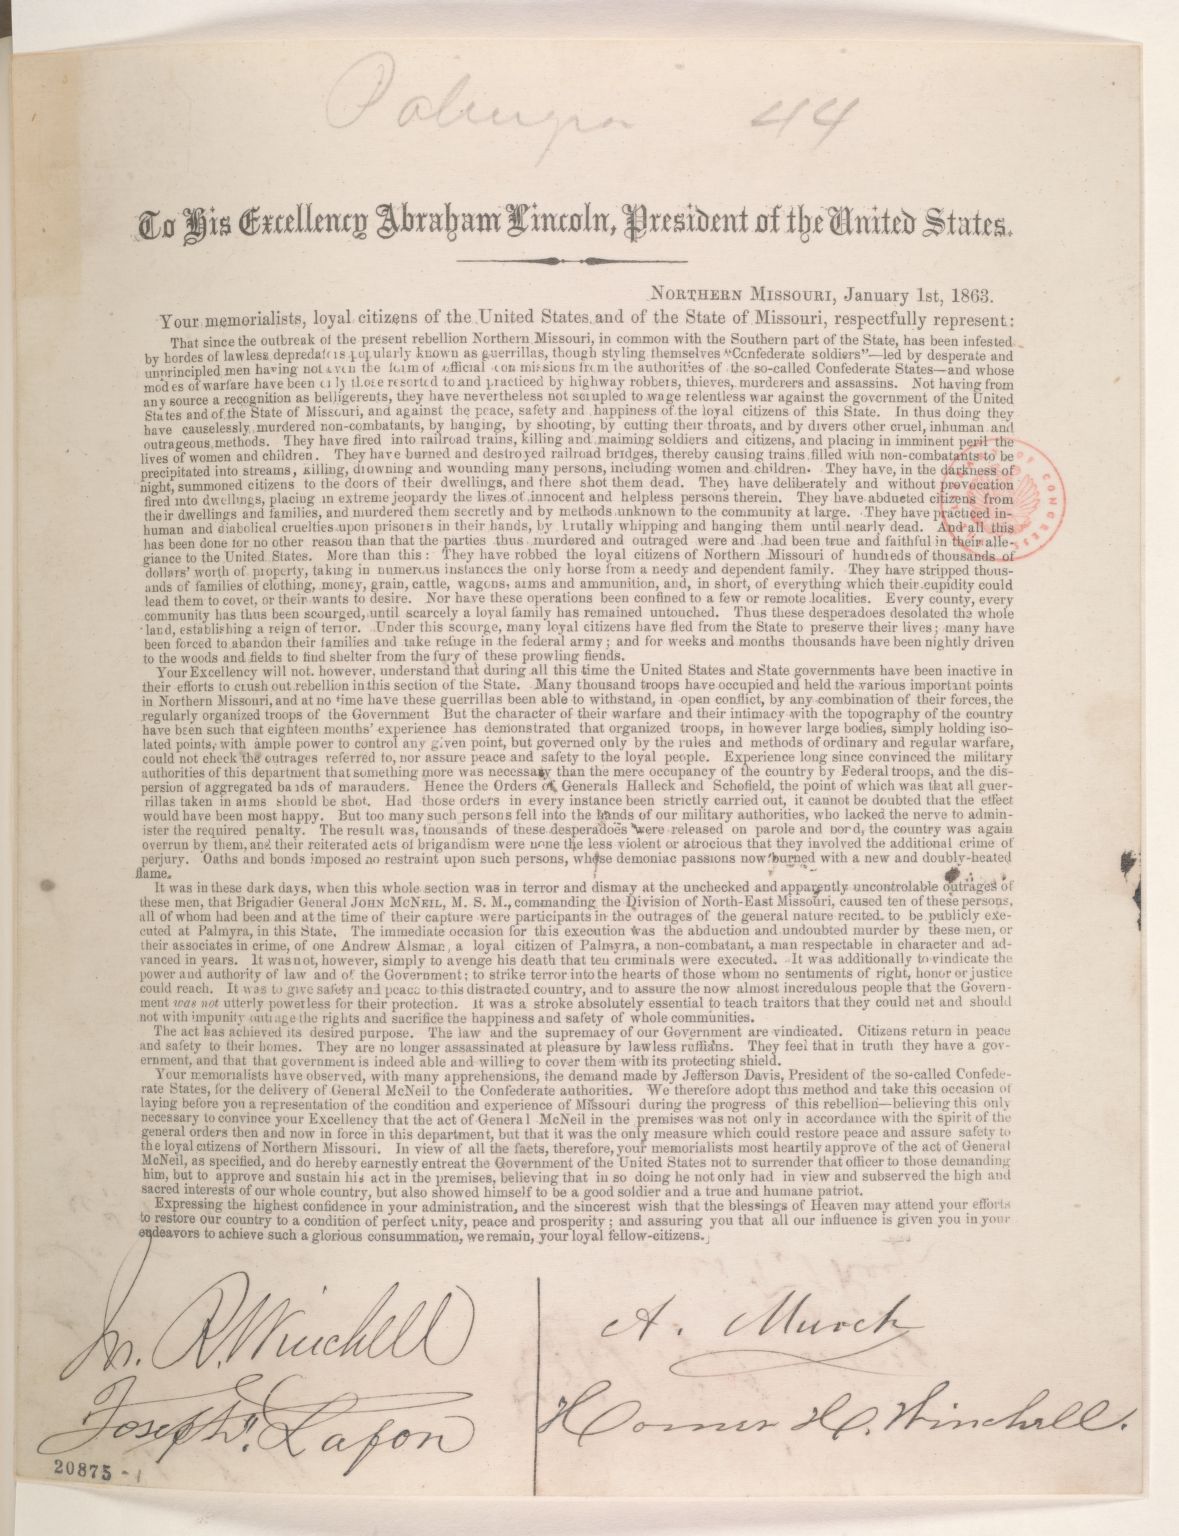 Palmyra 44
To His Excellency Abraham Lincoln, President of the United States.
NORTHERN MISSOURI, January 1st, 1863.
Your memorialists, loyal citizens of the United States and of the State of Missouri, respectfully represent:
That since the outbreak of the present rebellion Northern Missouri, in common with the Southern part of the State, has been infested
by hordes of lawless depredators popularly known as guerrillas, though styling themselves "Confederate soldiers"—led by desperate and
unprincipled men having not even the form of official commissions from the authorities of the so-called Confederate States—and whose
modes of warfare have been only those resorted to and practiced by highway robbers, thieves, murderers and assassins. Not having from
any source a recognition as belligerents, they have nevertheless not scrupled to wage relentless war against the government of the United
States and of the State of Missouri, and against the peace, safety and happiness of the loyal citizens of this State. In thus doing they
have causelessly murdered non-combatants, by hanging, by shooting, by cutting their throats, and by divers other cruel, inhuman and
outrageous methods. They have fired into railroad trains, killing and maiming soldiers and citizens, and placing in imminent peril the
lives of women and children. They have burned and destroyed railroad bridges, thereby causing trains filled with non-combatants to be
precipitated into streams, killing, drowning and wounding many persons, including women and children. They have, in the darkness of
night, summoned citizens to the doors of their dwellings, and there shot them dead. They have deliberately and without provocation
fired into dwellings, placing in extreme jeopardy the lives of innocent and helpless persons therein. They have abducted citizens from
their dwellings and families, and murdered them secretly and by methods unknown to the community at large. They have practiced in-
human and diabolical cruelties upon prisoners in their hands, by brutally whipping and hanging them until nearly dead. And all this
has been done for no other reason than that the parties thus murdered and outraged were and had been true and faithful in their alle-
giance to the United States. More than this: They have robbed the loyal citizens of Northern Missouri of hundreds of thousands of
dollars' worth of property, taking in numerous instances the only horse from a needy and dependent family. They have stripped thous-
ands of families of clothing, money, grain, cattle, wagons, arms and ammunition, and, in short, of everything which their cupidity could
lead them to covet, or their wants to desire. Nor have these operations been confined to a few or remote localities. Every county, every
community has thus been scourged, until scarcely a loyal family has remained untouched. Thus these desperadoes desolated the whole
land, establishing a reign of terror. Under this scourge, many loyal citizens have fled from the State to preserve their lives; many have
been forced to abandon their families and take refuge in the federal army; and for weeks and months thousands have been nightly driven
to the woods and fields to find shelter from the fury of these prowling fiends.
Your Excellency will not, however, understand that during all this time the United States and State governments have been inactive in
their efforts to crush out rebellion in this section of the State. Many thousand troops have occupied and held the various important points
in Northern Missouri, and at no time have these guerrillas been able to withstand, in open conflict, by any combination of their forces, the
regularly organized troops of the Government But the character of their warfare and their intimacy with the topography of the country
have been such that eighteen months' experience has demonstrated that organized troops, in however large bodies, simply holding iso-
lated points, with ample power to control any given point, but governed only by the rules and methods of ordinary and regular warfare,
could not check the outrages referred to, nor assure peace and safety to the loyal people. Experience long since convinced the military
authorities of this department that something more was necessary than the mere occupancy of the country by Federal troops, and the dis-
persion of aggregated bands of marauders. Hence the Orders of Generals Halleck and Schofield, the point of which was that all guer-
rillas taken in arms should be shot. Had those orders in every instance been strictly carried out, it cannot be doubted that the effect
would have been most happy. But too many such persons fell into the hands of our military authorities, who lacked the nerve to admin-
ister the required penalty. The result was, thousands of these desperadoes were released on parole and bond, the country was again
overrun by them, and their reiterated acts of brigandism were none the less violent or atrocious that they involved the additional crime of
perjury. Oaths and bonds imposed no restraint upon such persons, whose demoniac passions now burned with a new and doubly-heated
flame.
It was in these dark days, when this whole section was in terror and dismay at the unchecked and apparently uncontrolable outrages of
these men, that Brigadier General JOHN MCNEIL, M. S. M., commanding the Division of North-East Missouri, caused ten of these persons,
all of whom had been and at the time of their capture were participants in the outrages of the general nature recited, to be publicly exe-
cuted at Palmyra, in this State. The immediate occasion for this execution was the abduction and undoubted murder by these men, or
their associates in crime, of one Andrew Alsman, a loyal citizen of Palmyra, a non-combatant, a man respectable in character and ad-
vanced in years. It was not, however, simply to avenge his death that ten criminals were executed. It was additionally to vindicate the
power and authority of law and of the Government; to strike terror into the hearts of those whom no sentiments of right, honor or justice
could reach. It was to give safety and peace to this distracted country, and to assure the now almost incredulous people that the Govern-
ment was not utterly powerless for their protection. It was a stroke absolutely essential to teach traitors that they could not and should
not with impunity outrage the rights and sacrifice the happiness and safety of whole communities.
The act has achieved its desired purpose. The law and the supremacy of our Government are vindicated. Citizens return in peace
and safety to their homes. They are no longer assassinated at pleasure by lawless ruffians. They feel that in truth they have a gov-
ernment, and that that government is indeed able and willing to cover them with its protecting shield.
Your memorialists have observed, with many apprehensions, the demand made by Jefferson Davis, President of the so-called Confede-
rate States, for the delivery of General McNeil to the Confederate authorities. We therefore adopt this method and take this occasion of
laying before you a representation of the condition and experience of Missouri during the progress of this rebellion—believing this only
necessary to convince your Excellency that the act of General McNeil in the premises was not only in accordance with the spirit of the
general orders then and now in force in this department, but that it was the only measure which could restore peace and assure safety to
the loyal citizens of Northern Missouri. In view of all the facts, therefore, your memorialists most heartily approve of the act of General
McNeil, as specified, and do hereby earnestly entreat the Government of the United States not to surrender that officer to those demanding
him, but to approve and sustain his act in the premises, believing that in so doing he not only had in view and subserved the high and
sacred interests of our whole country, but also showed himself to be a good soldier and a true and humane patriot.
Expressing the highest confidence in your administration, and the sincerest wish that the blessings of Heaven may attend your efforts
to restore our country to a condition of perfect unity, peace and prosperity; and assuring you that all our influence is given you in your
endeavors to achieve such a glorious consummation, we remain, your loyal fellow-citizens.
R. Winchell
Joseph Lafon
A. Murch
Homer H. Winchell.
20875